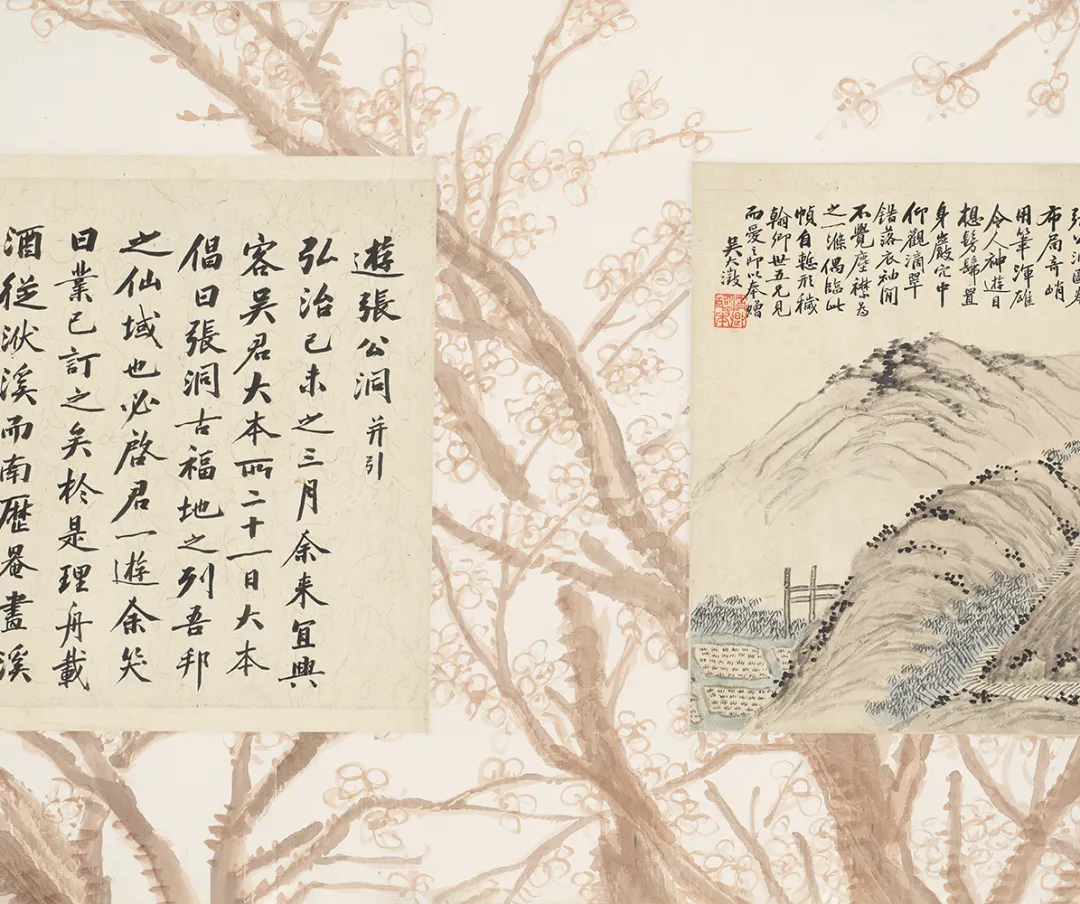 張公洞圖卷
布局奇峭
用筆渾雄
令人神遊目
想髣髴置
身巖穴中
仰觀滴翠
錯落衣袖間
不覺塵襟為
之一滌偶臨此
幀自慙形穢
翰卿世五兄見
而愛即以奉贈
吳大澂
遊張公洞 并引
弘治己未之三月余来宜興
客吳君大本所二十一日大本
倡曰張洞古福地之列吾邦
之仙域也必啓君一遊余笑
曰業已訂之矣於是理舟載
酒従洑溪而南歷罨畫溪